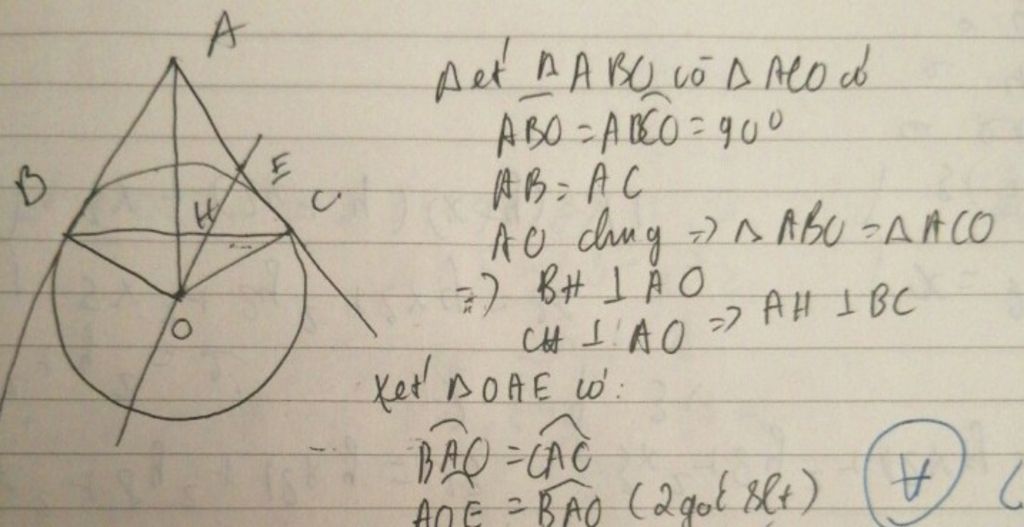 A
B
E
C
H
O
Xét Δ ABO có Δ ACO có
ABO = ACO = 90°
AB = AC
AO chung => Δ ABO = Δ ACO
=> BH ⊥ AO
CH ⊥ AO => AH ⊥ BC
Xét Δ OAE có:
BAO = CAO
AOE = BAO (2 góc slt)